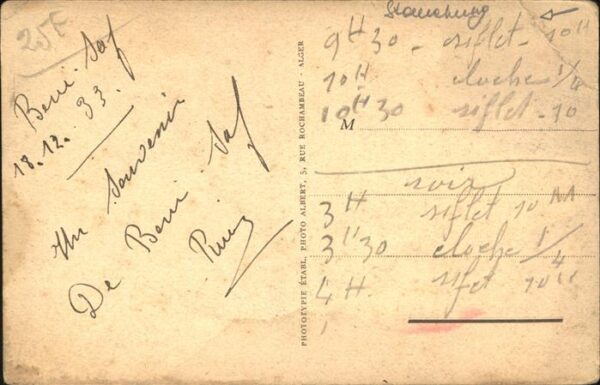 25F
Beni Saf
18.12.33.
Un Souvenir
De Beni Saf
PHOTOTYPIE ÉTABL. PHOTO ALBERT, 5, RUE ROCHAMBEAU - ALGER
9H30 - sifflet - 10H
10H cloche 1/4
10H30 siflet - 10
M
soir
3H siflet 10 M
3H30 cloche 1/4
4H. 10